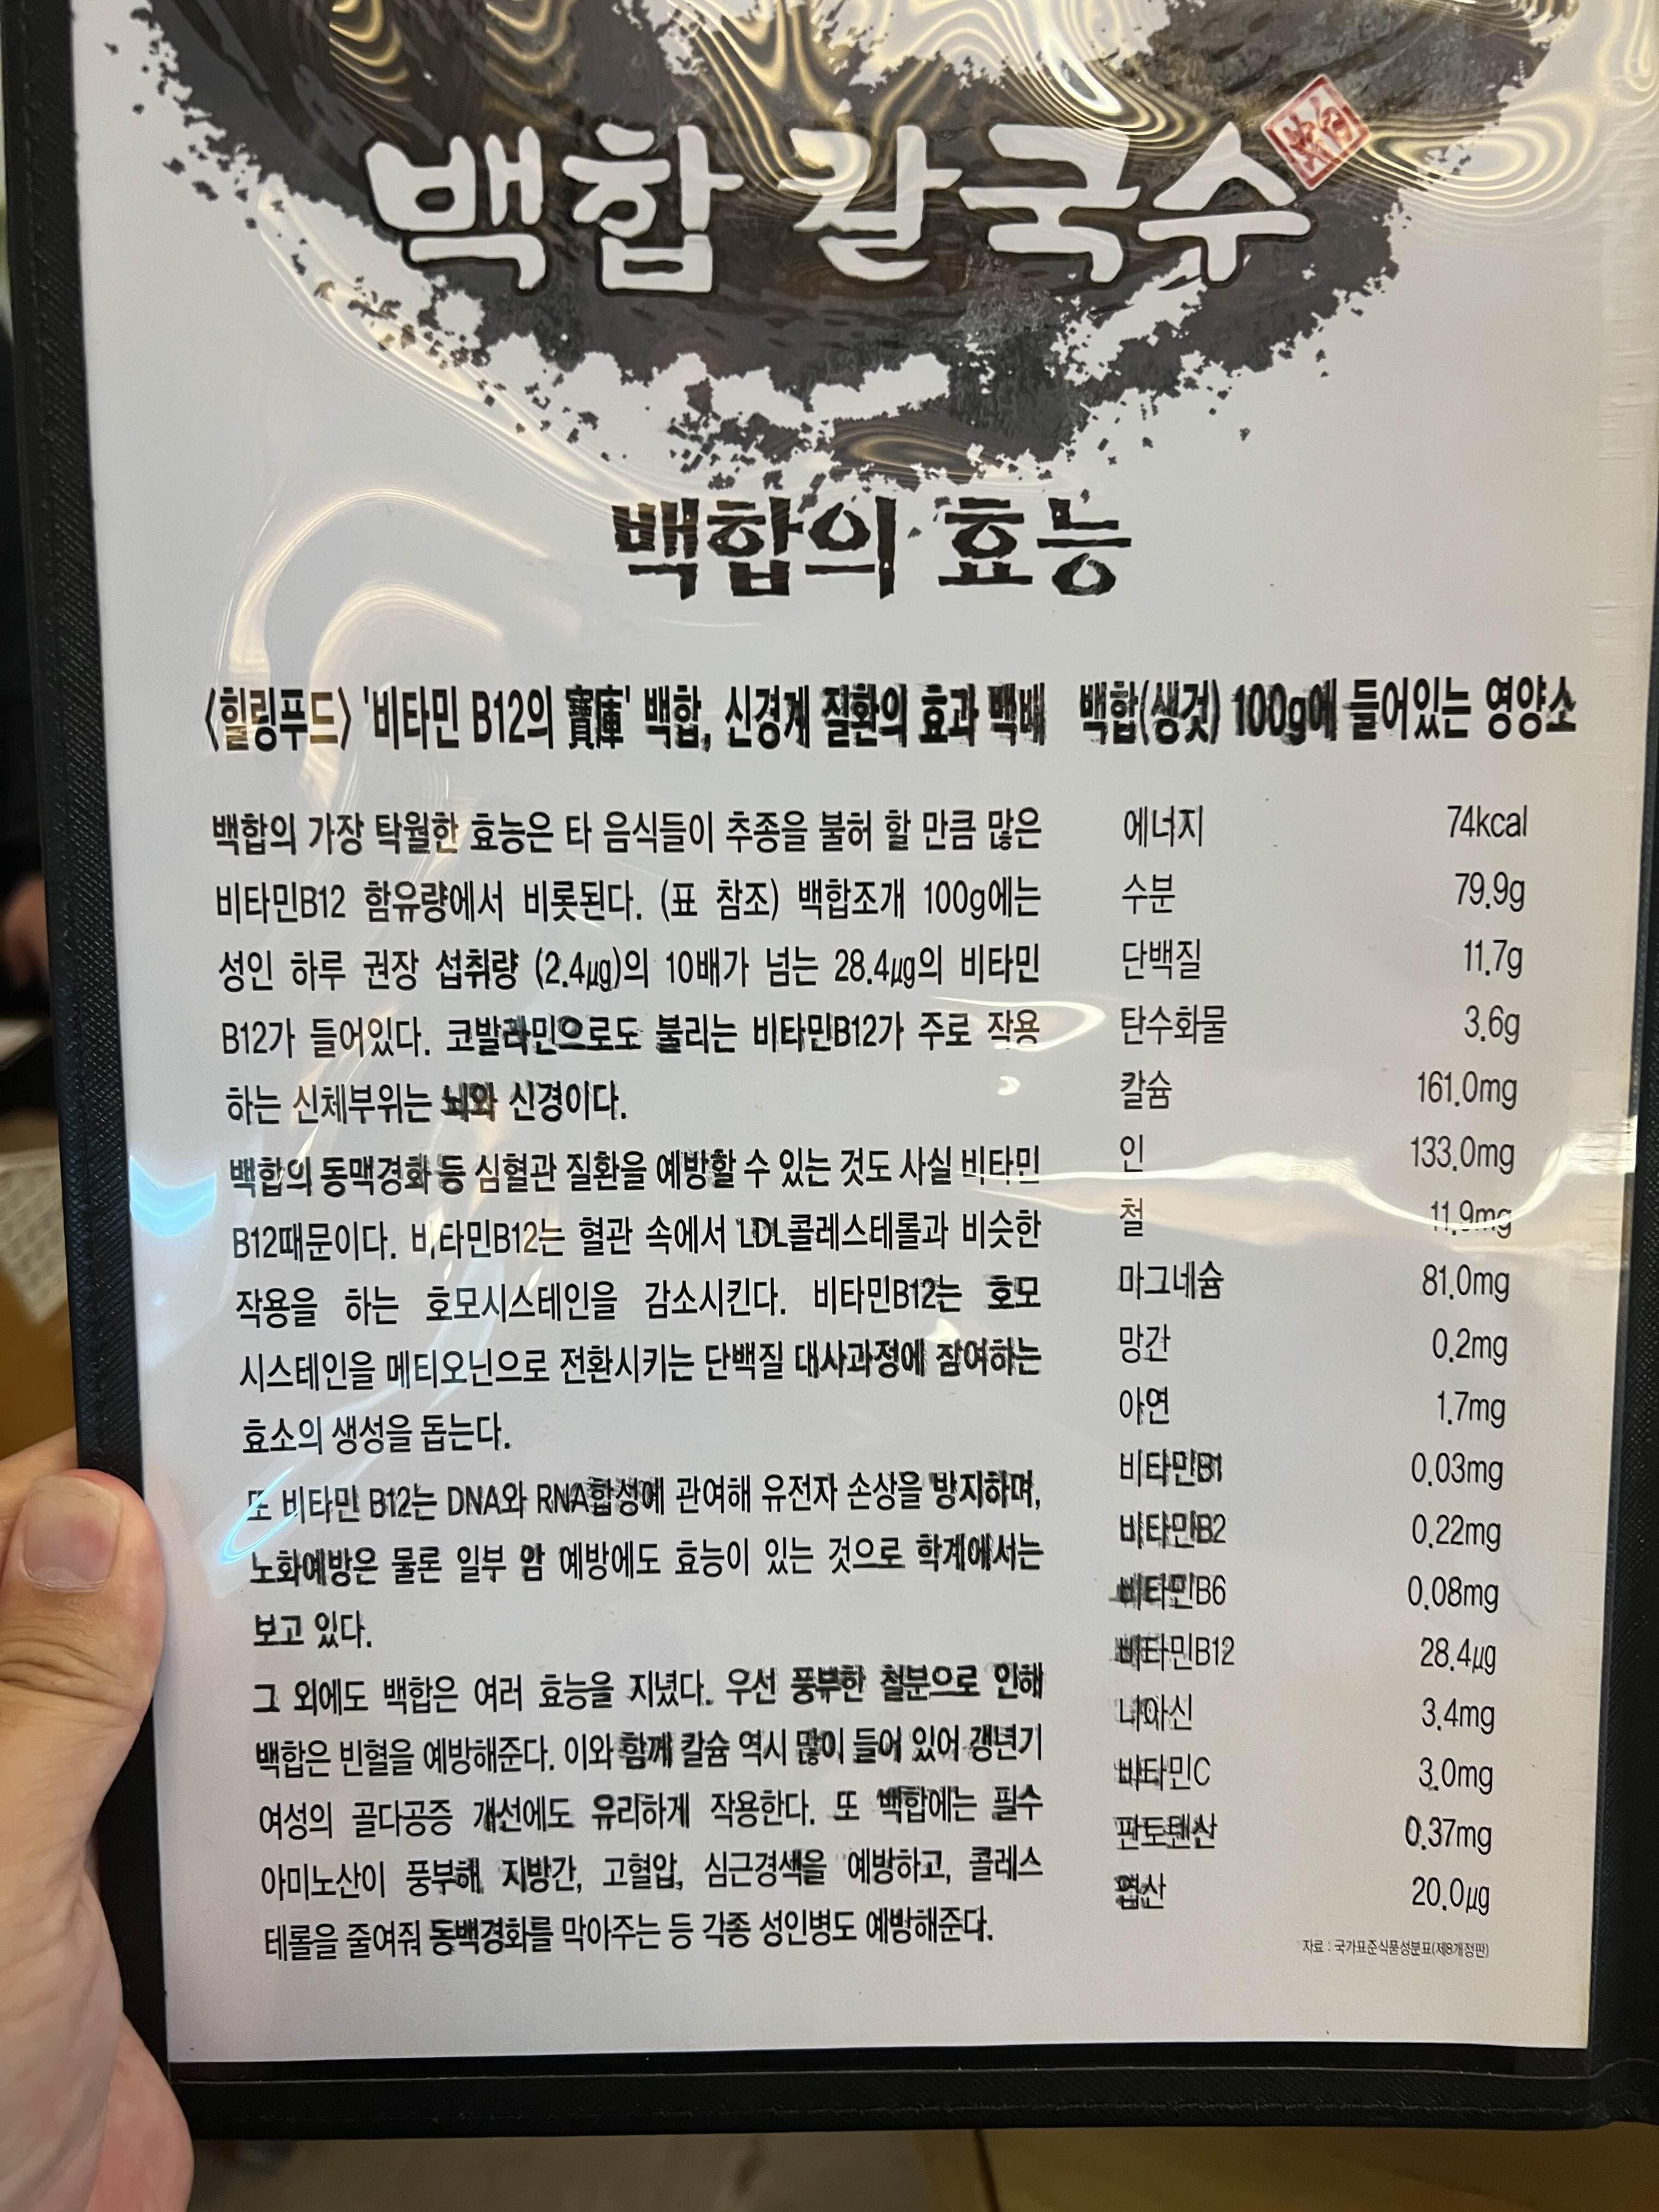 백합 칼국수
백합의 효능
<힐링푸드> '비타민 B12의 寶庫' 백합, 신경계 질환의 효과 백배
백합의 가장 탁월한 효능은 타 음식들이 추종을 불허 할 만큼 많은
비타민B12 함유량에서 비롯된다. (표 참조) 백합조개 100g에는
성인 하루 권장 섭취량 (2.4㎍)의 10배가 넘는 28.4㎍의 비타민
B12가 들어있다. 코발라민으로도 불리는 비타민B12가 주로 작용
하는 신체부위는 뇌와 신경이다.
백합의 동맥경화 등 심혈관 질환을 예방할 수 있는 것도 사실 비타민
B12때문이다. 비타민B12는 혈관 속에서 LDL콜레스테롤과 비슷한
작용을 하는 호모시스테인을 감소시킨다. 비타민B12는 호모
시스테인을 메티오닌으로 전환시키는 단백질 대사과정에 잠여하는
효소의 생성을 돕는다.
또 비타민 B12는 DNA와 RNA합성에 관여해 유전자 손상을 방지하며,
노화예방은 물론 일부 암 예방에도 효능이 있는 것으로 학계에서는
보고 있다.
그 외에도 백합은 여러 효능을 지녔다. 우선 풍부한 철분으로 인해
백합은 빈혈을 예방해준다. 이와 함께 칼슘 역시 많이 들어 있어 갱년기
여성의 골다공증 개선에도 유리하게 작용한다. 또 백합에는 필수
아미노산이 풍부해 지방간, 고혈압, 심근경색을 예방하고, 콜레스
테롤을 줄여줘 동백경화를 막아주는 등 각종 성인병도 예방해준다.
백합(생것) 100g에 들어있는 영양소
에너지 74kcal
수분 79.9g
단백질 11.7g
탄수화물 3.6g
칼슘 161.0mg
인 133.0mg
철 11.9mg
마그네슘 81.0mg
망간 0.2mg
아연 1.7mg
비타민B1 0.03mg
비타민B2 0.22mg
비타민B6 0.08mg
비타민B12 28.4㎍
니아신 3.4mg
비타민C 3.0mg
판토텐산 0.37mg
엽산 20.0㎍
자료 : 국가표준식품성분표(제8개정판)